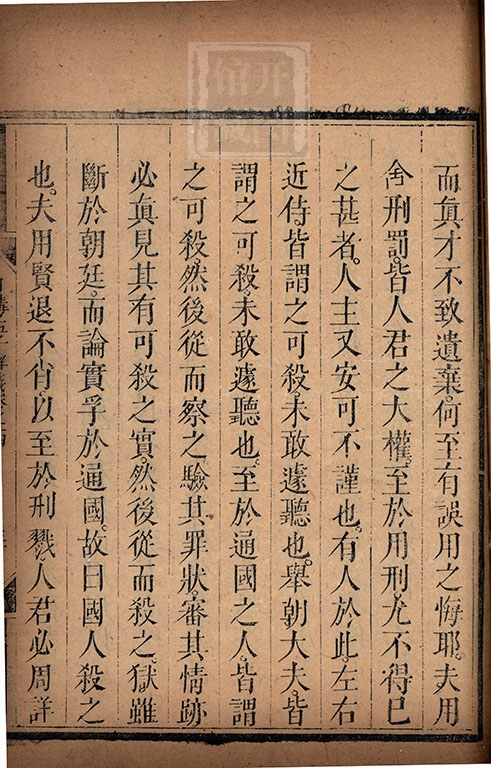 而眞才不致遺棄。何至有誤用之悔耶。夫用
舍刑罰。皆人君之大權。至於用刑。尤不得已
之甚者。人主又安可不謹也。有人於此。左右
近侍。皆謂之可殺。未敢遽聽也。舉朝大夫。皆
謂之可殺。未敢遽聽也。至於通國之人。皆謂
之可殺。然後從而察之。驗其罪狀。審其情跡。
必眞見其有可殺之實。然後從而殺之。獄雖
斷於朝廷。而論實孚於通國。故曰國人殺之
也。夫用賢退不肖。以至於刑戮。人君必周詳